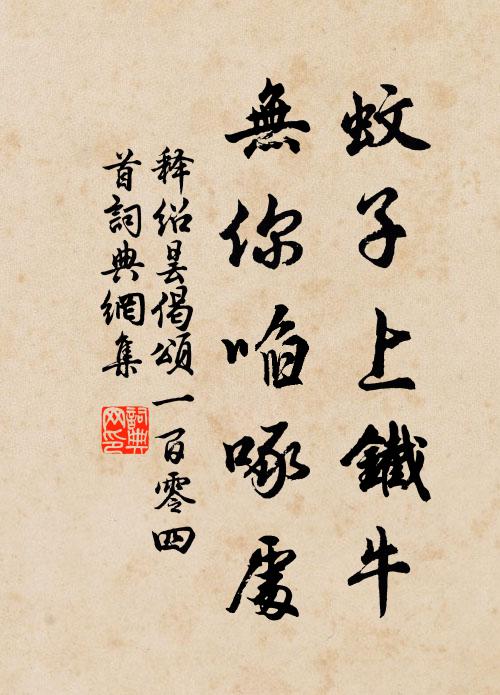 蚊子上鐵牛
無你啗啄處
释紹曇偈頌一百零四
首詞典網集
詞典
网印